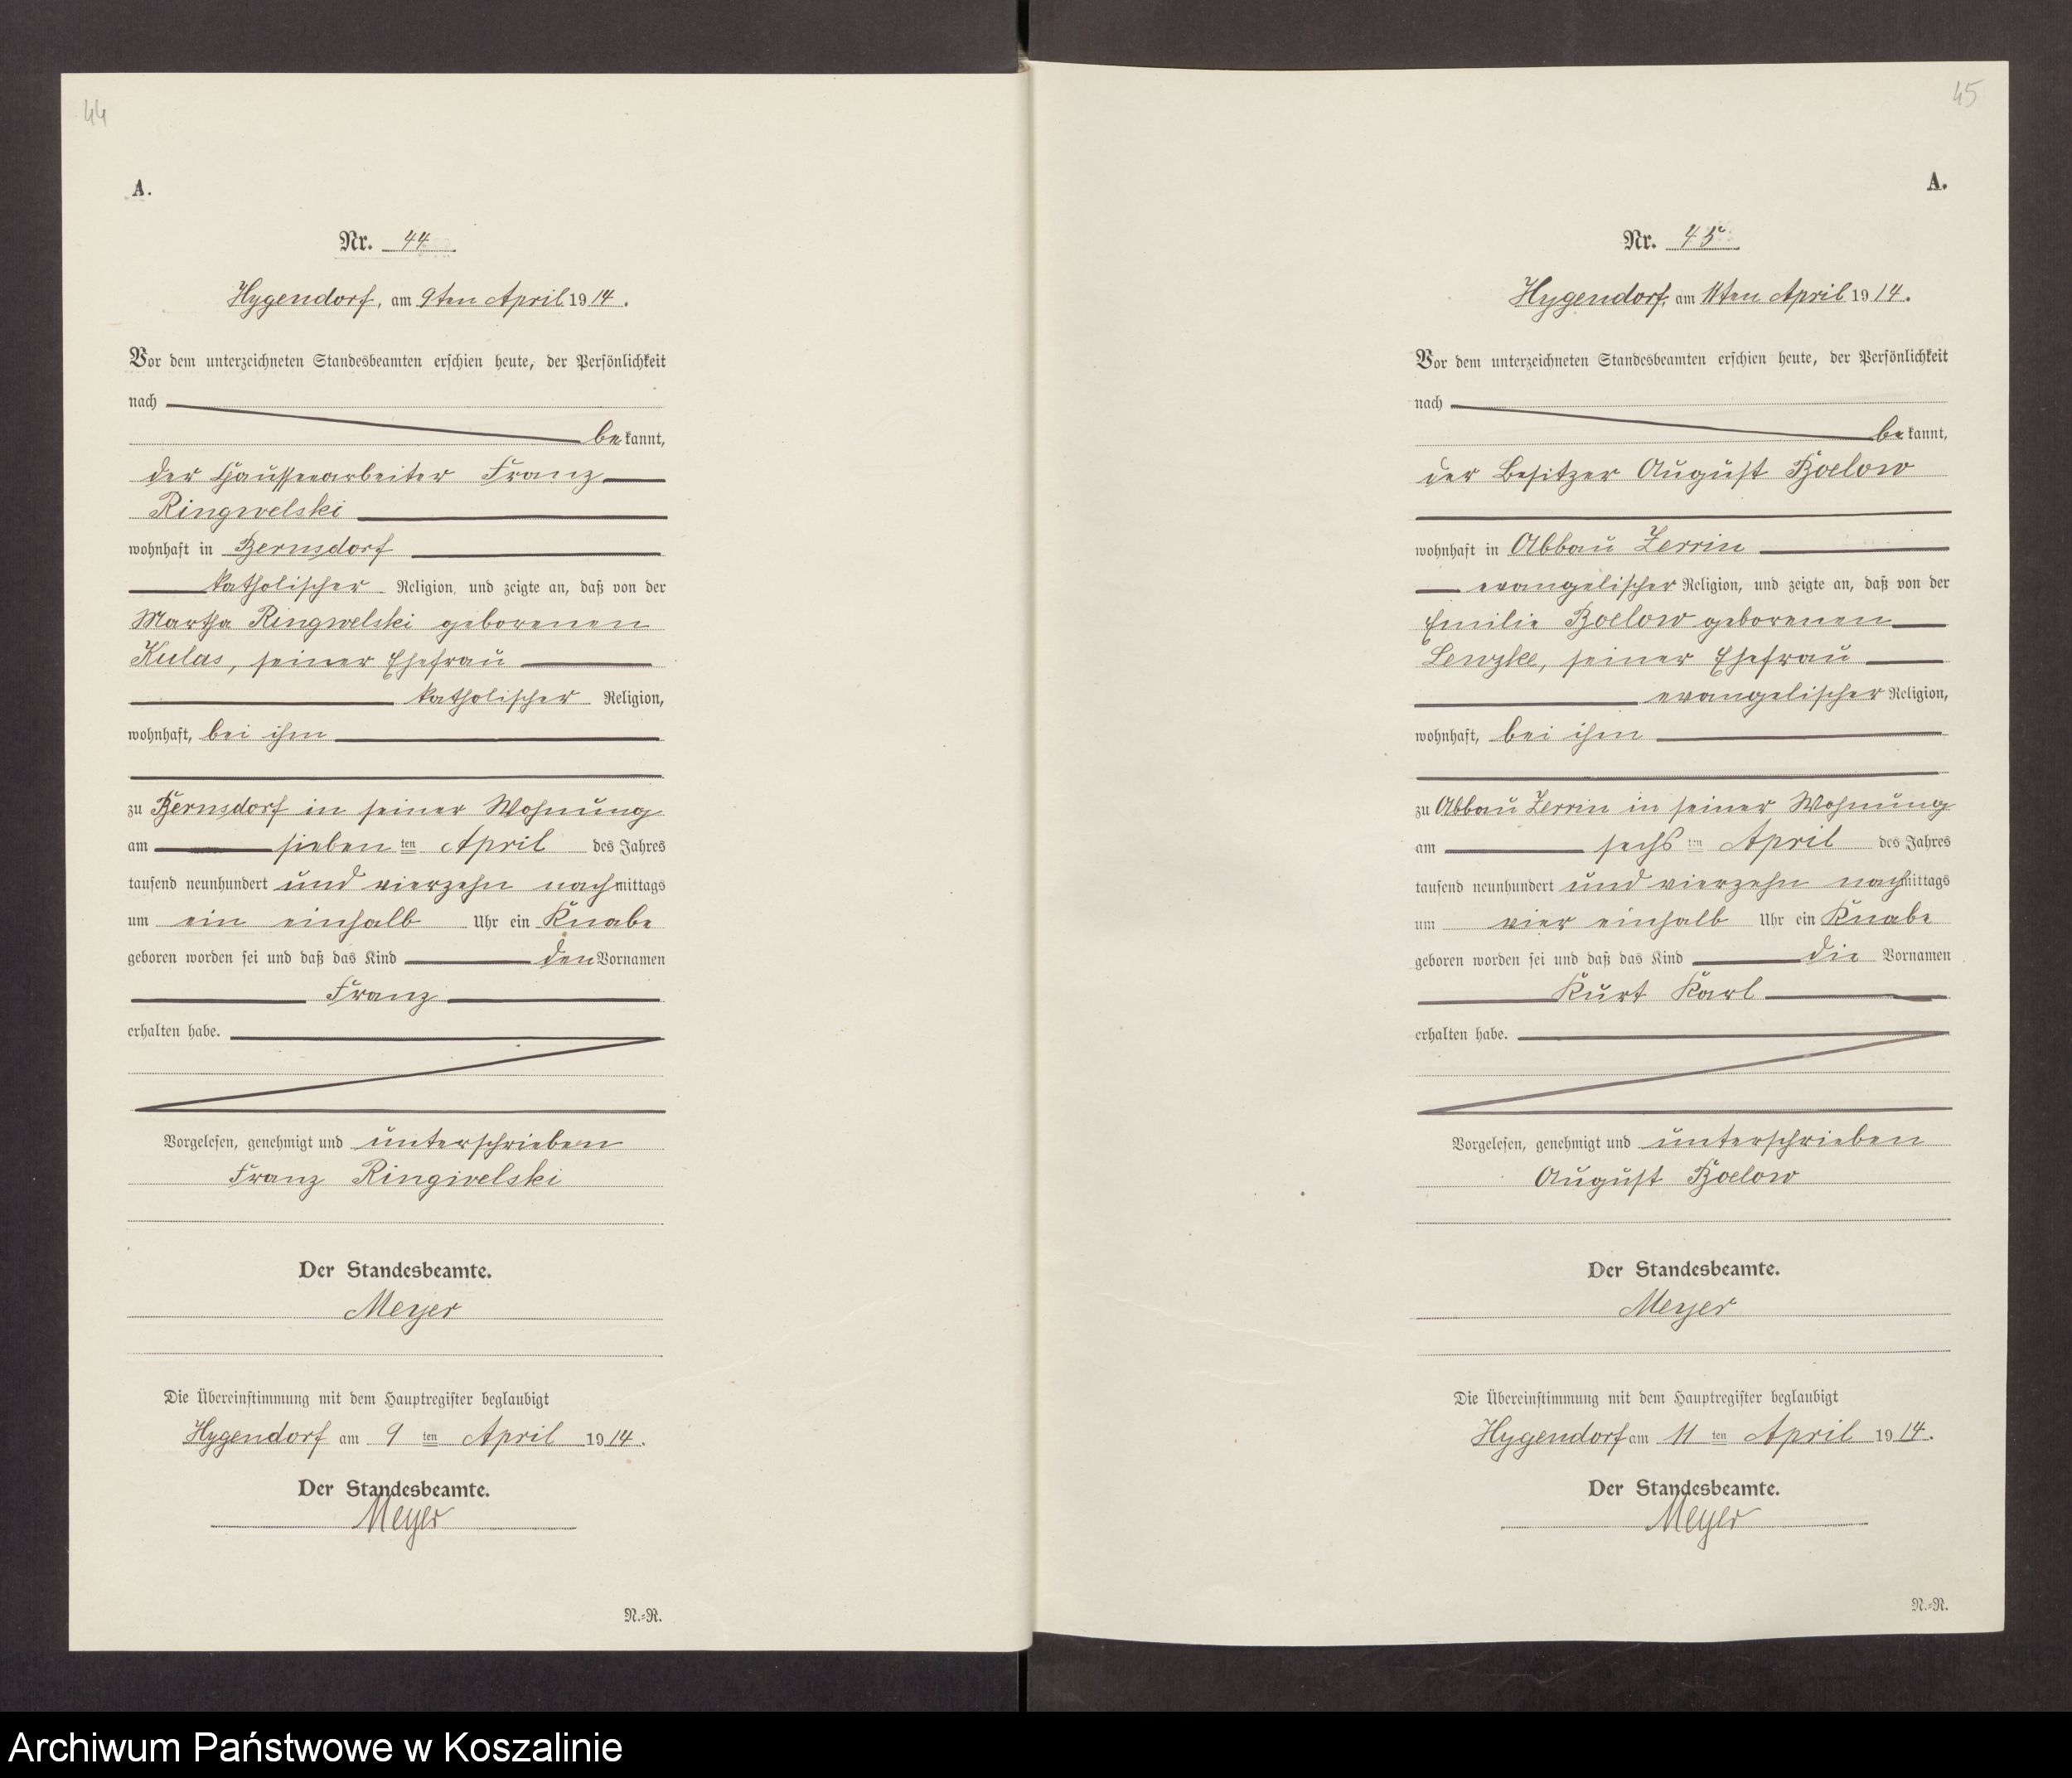 44
A.
Nr. 44
Hygendorf, am 9ten April 1914.
Vor dem unterzeichneten Standesbeamten erschien heute, der Persönlichkeit
nach
bekannt,
der Chausseearbeiter Franz
Ringwelski
wohnhaft in Bernsdorf
katholischer Religion, und zeigte an, daß von der
Martha Ringwelski geborenen
Kulas, seiner Ehefrau
katholischer Religion,
wohnhaft, bei ihm
zu Bernsdorf in seiner Wohnung
am siebenten April des Jahres
tausend neunhundert und vierzehn nachmittags
um ein einhalb Uhr ein Knabe
geboren worden sei und daß das Kind den Vornamen
Franz
erhalten habe.
Vorgelesen, genehmigt und unterschrieben
Franz Ringwelski
Der Standesbeamte.
Meyer
Die Übereinstimmung mit dem Hauptregister beglaubigt
Hygendorf am 9ten April 1914.
Der Standesbeamte.
Meyer
N.=R.
45
A.
Nr. 45
Hygendorf, am 11ten April 1914.
Vor dem unterzeichneten Standesbeamten erschien heute, der Persönlichkeit
nach
bekannt,
der Besitzer August Boelow
wohnhaft in Abbau Zerrin
evangelischer Religion, und zeigte an, daß von der
Emilie Boelow geborenen
Lenzke, seiner Ehefrau
evangelischer Religion,
wohnhaft, bei ihm
zu Abbau Zerrin in seiner Wohnung
am sechsten April des Jahres
tausend neunhundert und vierzehn nachmittags
um vier einhalb Uhr ein Knabe
geboren worden sei und daß das Kind die Vornamen
Kurt Karl
erhalten habe.
Vorgelesen, genehmigt und unterschrieben
August Boelow
Der Standesbeamte.
Meyer
Die Übereinstimmung mit dem Hauptregister beglaubigt
Hygendorf am 11ten April 1914.
Der Standesbeamte.
Meyer
N.=R.
Archiwum Państwowe w Koszalinie